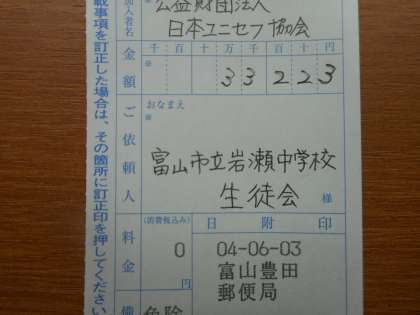 載事項を訂正した場合は、その箇所に訂正印を押してください
加入者名
公益財団法人
日本ユニセフ協会
金額
千 百 十 万 千 百 十 円
※
3 3 2 2 3
ご依頼人
おなまえ
※
富山市立岩瀬中学校
生徒会
様
料金
(消費税込み)
0
円
日附印
04-06-03
富山豊田
郵便局
備